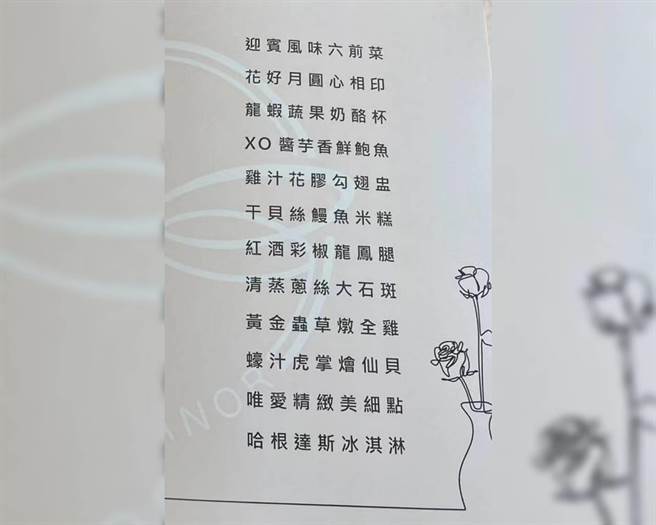 迎賓風味六前菜
花好月圓心相印
龍蝦蔬果奶酪杯
XO 醬芋香鮮鮑魚
雞汁花膠勾翅盅
干貝絲鰻魚米糕
紅酒彩椒龍鳳腿
清蒸蔥絲大石斑
黃金蟲草燉全雞
蠔汁虎掌燴仙貝
唯愛精緻美細點
哈根達斯冰淇淋